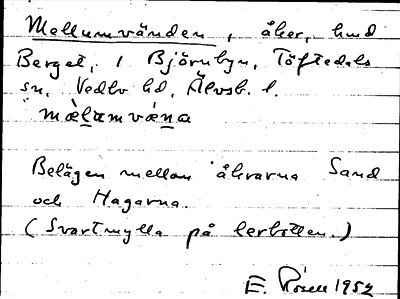 Mellumvänden, åker, hmd
Berget, 1 Björnbyn, Töftedals
sn, Vedbo hd, Älvsb. l.
mælumvæna
Belägen mellan åkrarna Sand
och Hagarna.
(Svartmylla på lerbotten.)
E. Rosén 1952